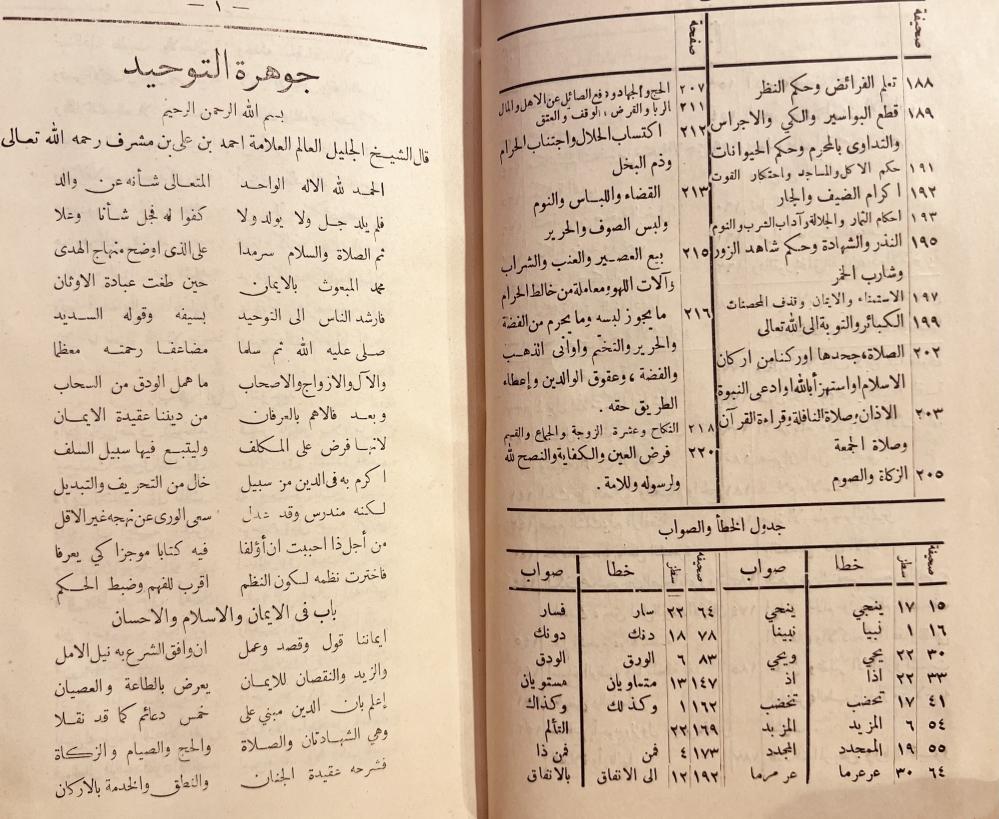 صحيفة
صحيفة
١٨٨ تعلم الفرائض وحكم النظر
١٨٩ قطع البواسير والكي والاجراس
والتداوى بالمحرم وحكم الحيوانات
١٩١ حكم الاكل والمساجد واحتكار القوت
١٩٢ اكرام الضيف والجار
١٩٣ احكام الثمار والجلالة وآداب الشرب والنوم
١٩٥ النذر والشهادة وحكم شاهد الزور
وشارب الخمر
١٩٧ الاستمناء والايمان وقذف المحصنات
١٩٩ الكبائر والتوبة الى الله تعالى
٢٠٢ الصلاة، جحدها او ركنا من اركان
الاسلام او استهزأ بالله او ادعى النبوة
٢٠٣ الاذان وصلاة النافلة وقراءة القرآن
وصلاة الجمعة
٢٠٥ الزكاة والصوم
صفحة
٢٠٧ الحج والجهاد ودفع الصائل عن الاهل والمال
٢١١ الربا والقرض، الوقف والعتق
٢١٢ اكتساب الحلال واجتناب الحرام
وذم البخل
٢١٣ القضاء واللباس والنوم
ولبس الصوف والحرير
٢١٥ بيع العصير والعنب والشراب
وآلات اللهو ومعاملة من خالط الحرام
٢١٦ ما يجوز لبسه وما يحرم من الفضة
والحرير والتختم واوانى الذهب
والفضة، وعقوق الوالدين وإعطاء
الطريق حقه.
٢١٨ النكاح وعشرة الزوجة والجماع والقسم
٢٢٠ فرض العين والكفاية والنصح لله
ولرسوله وللامة.
جدول الخطأ والصواب
صحيفة سطر خطا صواب صحيفة سطر خطا صواب
١٥ ١٧ ينجي ينحي ٦٤ ٢٢ سار فسار
١٦ ١ نبيا نبينا ٧٨ ١٨ دنك دونك
٣٠ ٢٢ يحي ويحي ٨٣ ٦ الورق الودق
٣٣ ٢٢ اذا اذ ١٤٧ ١٣ متساويان مستويان
٤١ ١٧ تحضب تخضب ١٦٢ ١ وكذلك وكذاك
٥٤ ٦ المزيد المزيد ١٦٩ ٢٢ التألم
٥٥ ١٩ الممجدد المجدد ١٧٣ ٤ فمن فمن ذا
٦٤ ٣٠ عرعرما عر مرما ١٩٢ ١٢ الى الاتفاق بالاتفاق
— ١ —
جوهرة التوحيد
بسم الله الرحمن الرحيم
قال الشيخ الجليل العالم العلامة احمد بن على بن مشرف رحمه الله تعالى
الحمد لله الاله الواحد المتعالى شأنه عن والد
فلم يلد جل ولا يولد ولا كفوا له فجل شأنا وعلا
ثم الصلاة والسلام سرمدا على الذى اوضح منهاج الهدى
محمد المبعوث بالايمان حين طغت عبادة الاوثان
فارشد الناس الى التوحيد بسيفه وقوله السديد
صلى عليه الله ثم سلما مضاعفا رحمته معظما
والآل والازواج والاصحاب ما همل الودق من السحاب
وبعد فالاهم بالعرفان من ديننا عقيدة الايمان
لانها فرض على المكلف وليتبع فيها سبيل السلف
اكرم به فى الدين من سبيل خال من التحريف والتبديل
لكنه مندرس وقد عدل سعى الورى عن نهجه غير الاقل
من أجل ذا احببت ان أؤلفا فيه كتابا موجزا كي يعرفا
فاخترت نظمه لكون النظم اقرب للفهم وضبط الحكم
باب فى الايمان والاسلام والاحسان
ايماننا قول وقصد وعمل ان وافق الشرع به نيل الامل
والزيد والنقصان للايمان يعرض بالطاعة والعصيان
إعلم بان الدين مبني على خمس دعائم كما قد نقلا
وهي الشهادتان والصلاة والحج والصيام والزكاة
فشرحه عقيدة الجنان والنطق والخدمة بالاركان